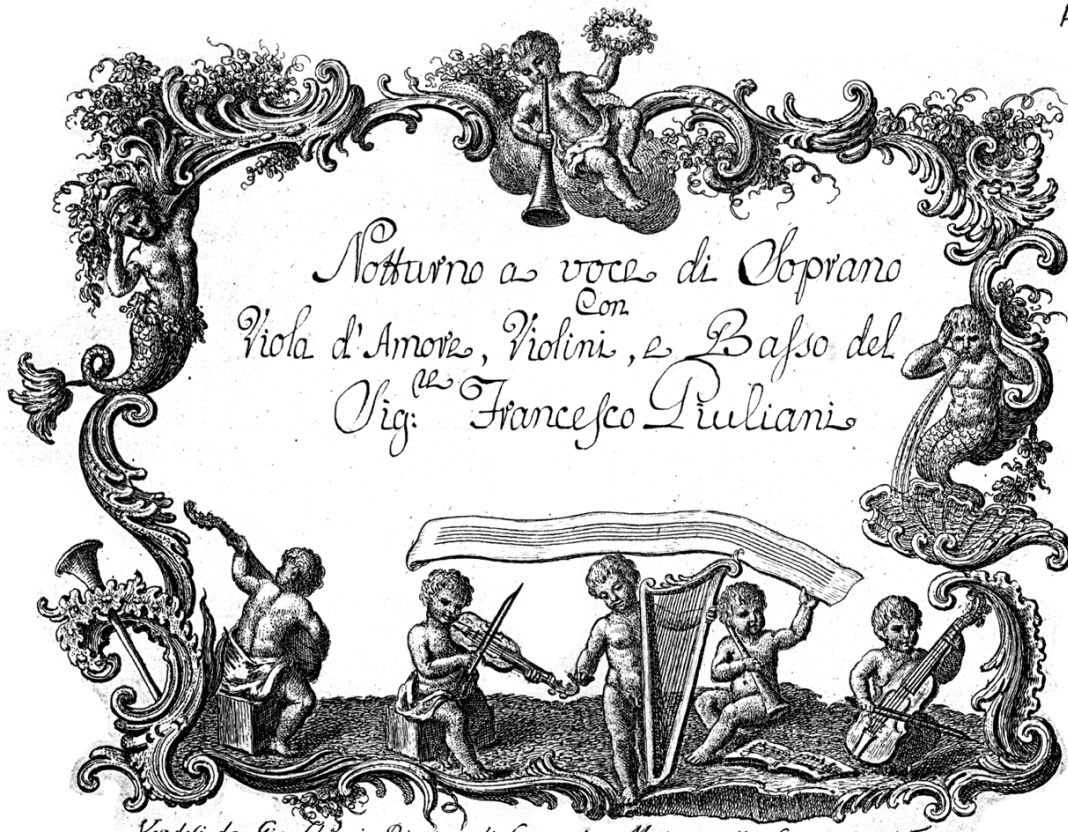 Notturno a voce di Soprano
Con
Viola d'Amore, Violini, e Basso del
Sig:re Francesco Giuliani